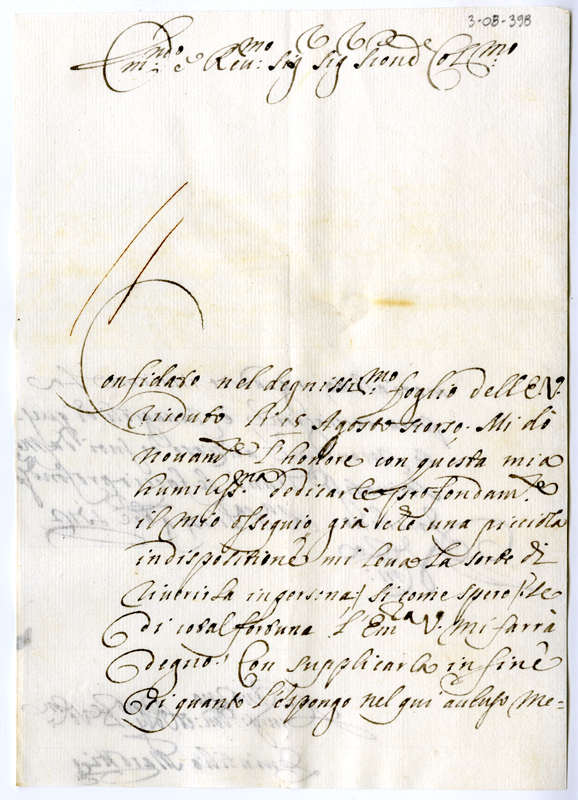 3-05-398
Em:mo e Rev:mo Sig Sig
Confidato nel degnissi:mo foglio dell E V:
riceuto li 15 Agosto scorso. Mi dò
nouam:te l'honore con questa mia
humiliss:ma dedicarle profondam:te
il mio ossequio già che una picciola
indispositione mi leua la sorte di
riuerirla in persona / si come spero / se
di cotal fortuna l'Em:za V. mi farrà
degno. Con supplicarla in fine
di quanto l'espongo nel qui